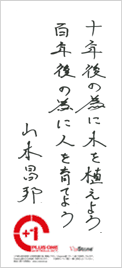 十年後の為に木を植えよう.
百年後の為に人を育てよう
山本昌邦
+1
PLUS ONE